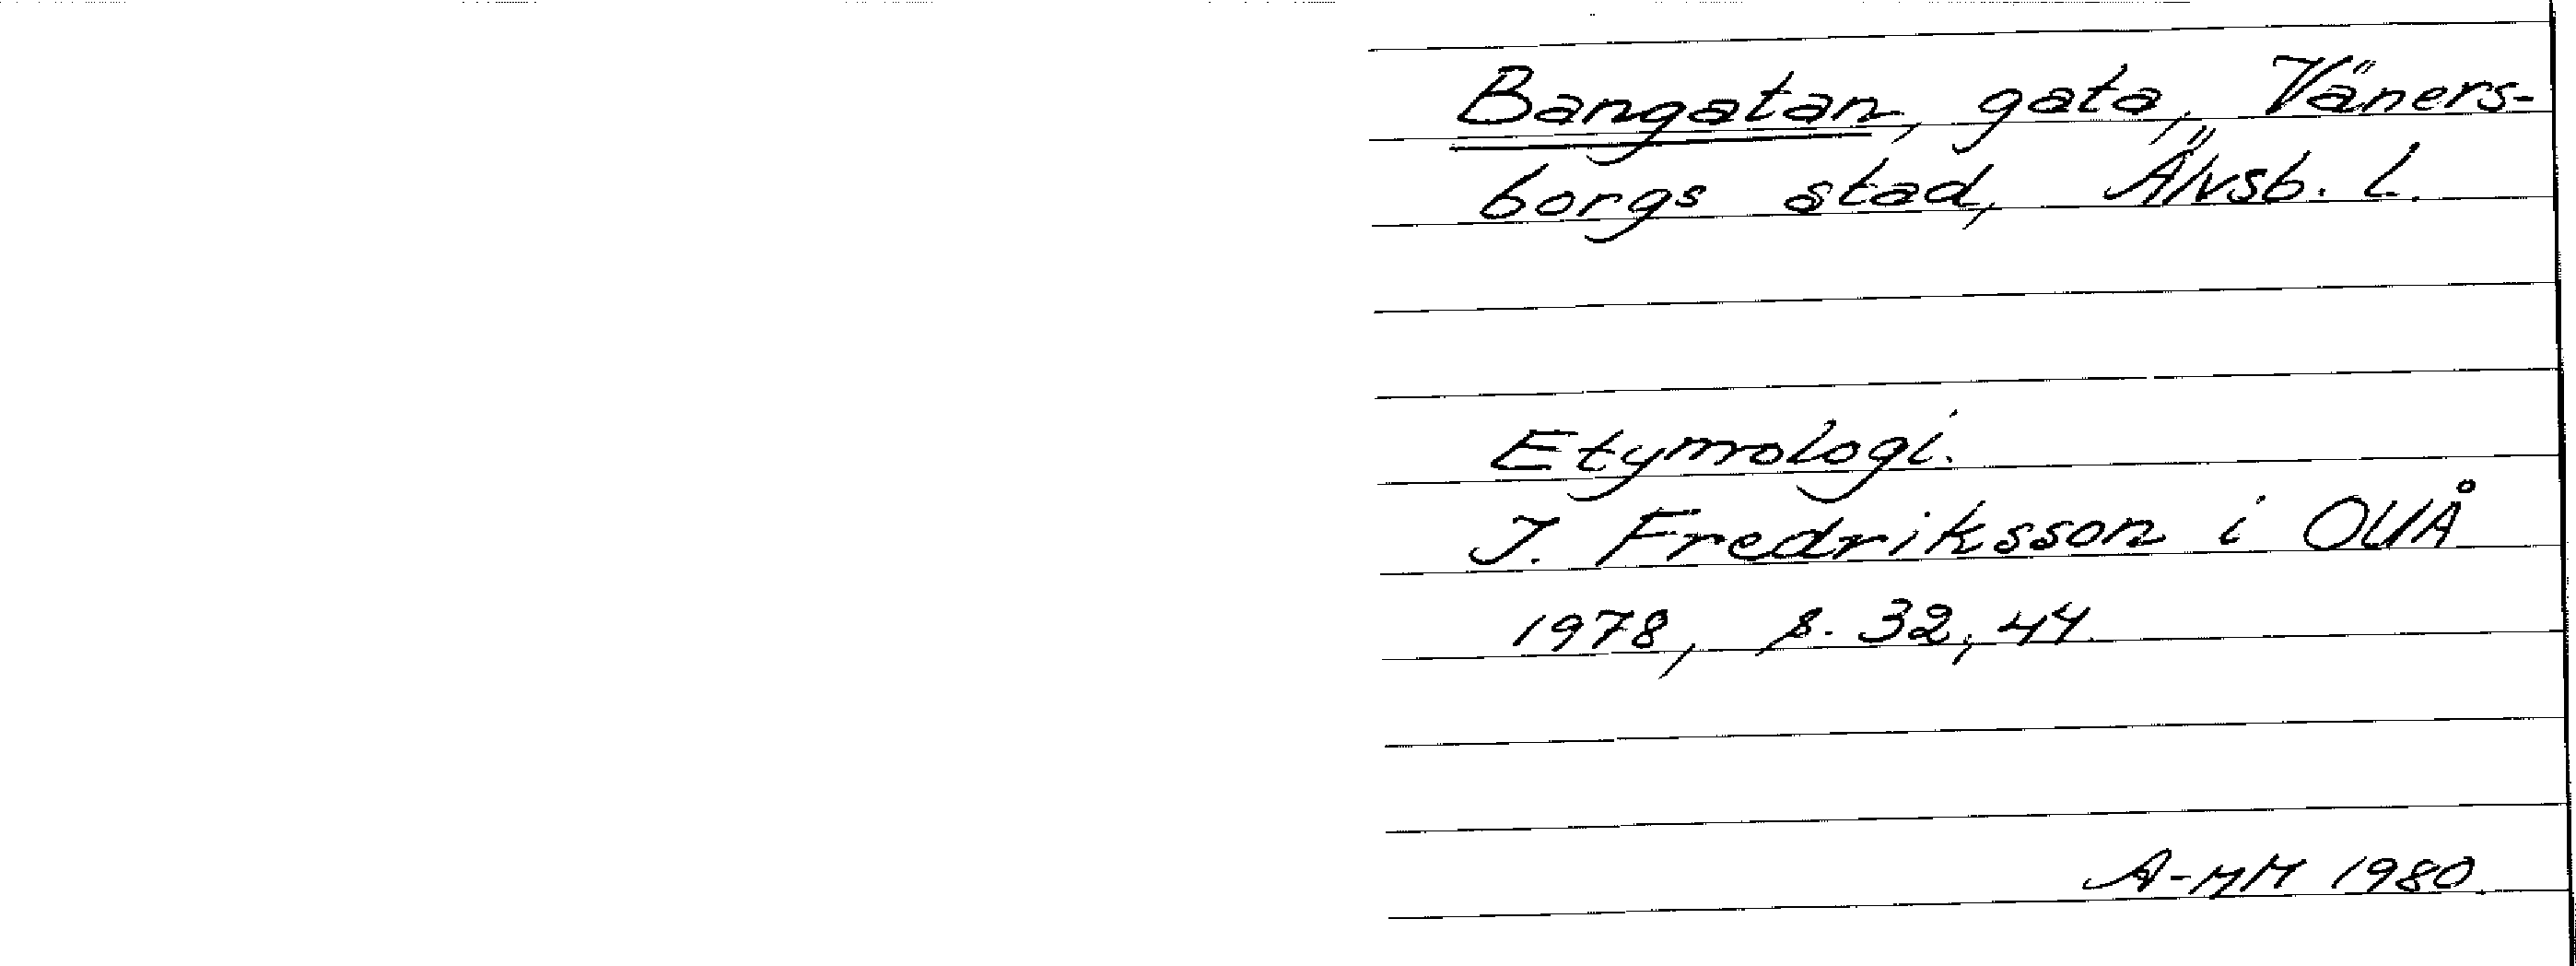 Bangatan, gata, Väners-
borgs stad, Älvsb. L.
Etymologi.
I. Fredriksson i OUÅ
1978, s. 32, 44.
A-MM 1980